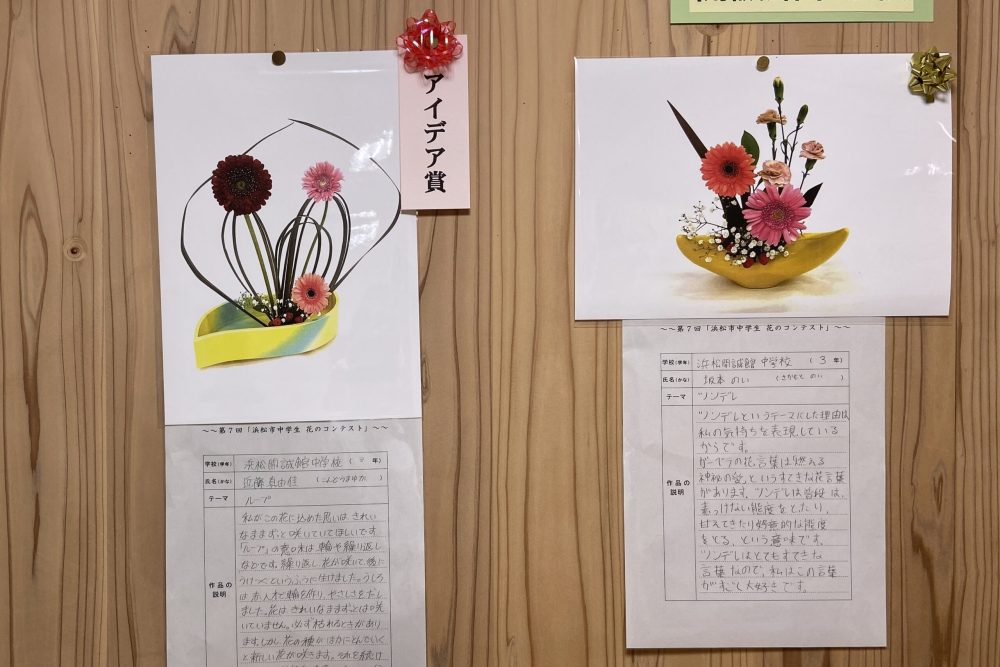 アイデア賞
～～第7回「浜松市中学生 花のコンテスト」～～
学校(学年) 浜松開誠館中学校 ( 年)
氏名(かな) 近藤 真由佳 (こんどうまゆか)
テーマ ループ
作品の説明
私がこの花に込めた思いは きれい
なままずっと咲いていてほしいです。
「ループ」の意味は 輪や繰り返し
などです。繰り返し 花が咲いて、
というふうに付けました。うしろ
は 輪を作り、やさしさをだし
ました。花は きれいなままずっとは咲
いていません。必ず枯れるときがあり
ます。しかし、花の種が ほかにとんでいく
と新しい花が咲きます。それを続け
～～第7回「浜松市中学生 花のコンテスト」～～
学校(学年) 浜松開誠館 中学校 ( 3 年)
氏名(かな) 坂本 のい (さかもと のい)
テーマ ツンデレ
作品の説明
ツンデレというテーマにした理由は、
私の気持ちを表現している
からです。
ガーベラの花言葉は「燃える
神秘の愛」というすてきな花言葉
があります。ツンデレは普段 は、
素っけない態度をとたり、
甘えてきたり好意的な態度
をとる、という意味です。
ツンデレはとてもすてきな
言葉 なので、私はこの言葉
がすごく大好きです。